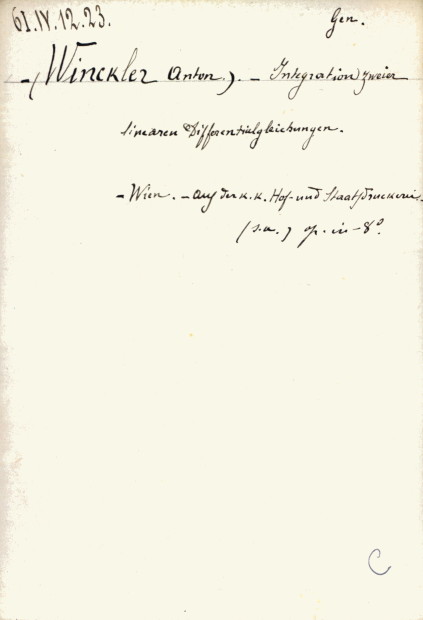 61.IV.12.23.
Gen.
- (Winckler Anton.). - Integration zweier
linearen Differentialgleichungen.
- Wien. - Auf der k. k. Hof- und Staatsdruckerei.
(s.a.) op. in-8º.
C